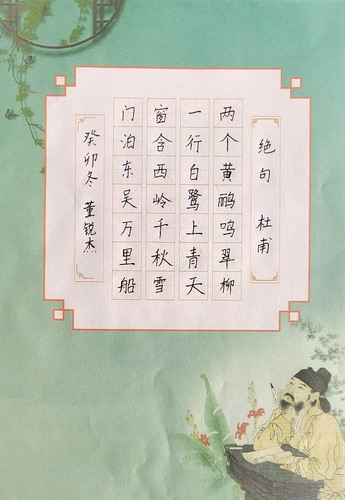 绝句 杜甫
两个黄鹂鸣翠柳
一行白鹭上青天
窗含西岭千秋雪
门泊东吴万里船
癸卯冬 董锐杰